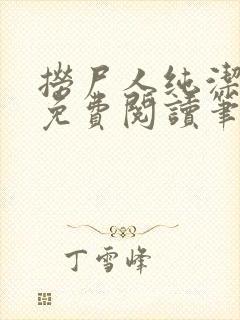 撈尸人純潔
免費閱讀筆
丁雪峰